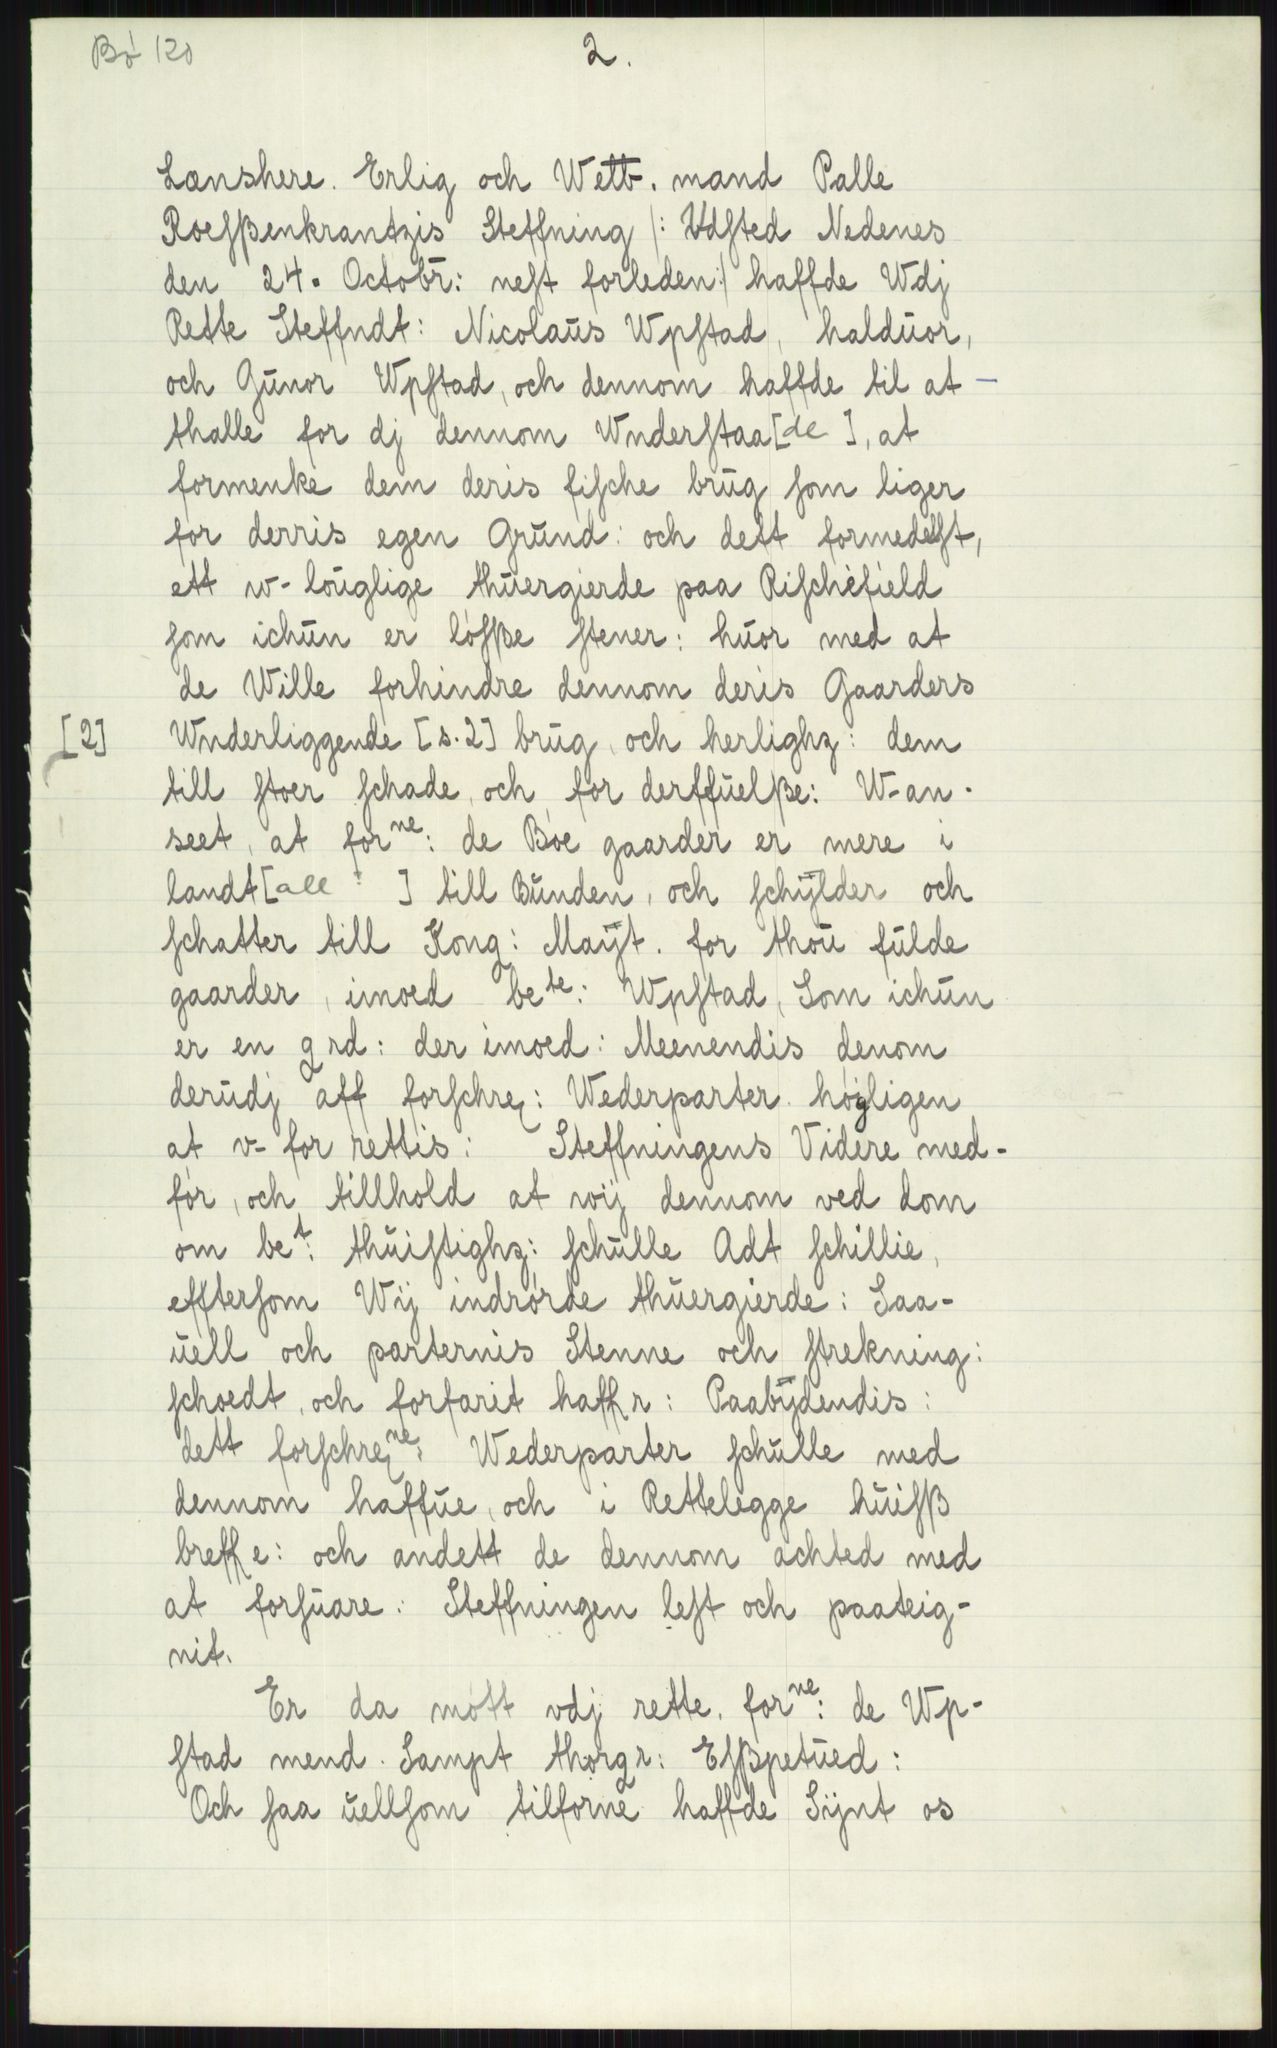 Bø 120
2.
Lænshere. Erlig och Wetb. mand Palle
Roesſßenkrantzis Steffning /: Udſted Nedenes
den 24. Octobr: neſt forleden:/ haffde Wdj
Rette Steffndt: Nicolaus Wpſtad, halduor,
och Gunor Wpſtad, och dennom haffde til at –
thalle for dj dennom Wnderſtaa[de], at
formenke dem deris fiſche brug ſom liger
for derris egen Grund: och dett formedelſt,
ett w-louglige thuergierde paa Riſchefield
ſom ichun er løſße ſtener: huor med at
de Wille forhindre dennom deris Gaarders
[2] Wnderliggende [s.2] brug, och herlighz: dem
till ſtoer ſchade, och for derffuelße: W-an-
seet, at forne: de Bøe gaarder er mere i
landt[all ] till Bunden, och ſchÿlder och
ſchatter till Kong: Maÿt. for thou fulde
gaarder, imoed bete: Wpſtad, Som ichun
er en grd: der imoed: Meenendis denom
derudj aff forſchre: Wederparter høgligen
at v-for rettis: Steffningens Videre med-
før, och tillhold at wij dennom ved dom
om bet: thuiſtighz: ſchulle Adt ſchillie,
effterſom Wij indrørde thuergierde: Saa-
uell och parternis Stenne och ſtrekning:
ſchoedt, och forfarit haffr: Paabÿdendis:
dett forſchrene: Wederparter ſchulle med
dennom haffue, och i Rettelegge huiſß
breffe: och andett de dennom achted med
at forſuare: Steffningen leſt och paateig-
nit.
Er da møtt vdj rette, forne: de Wp-
ſtad mend. Sampt thorgr: Eſßpetued:
Och ſaa uellſom tilforne haffde Sÿnt os